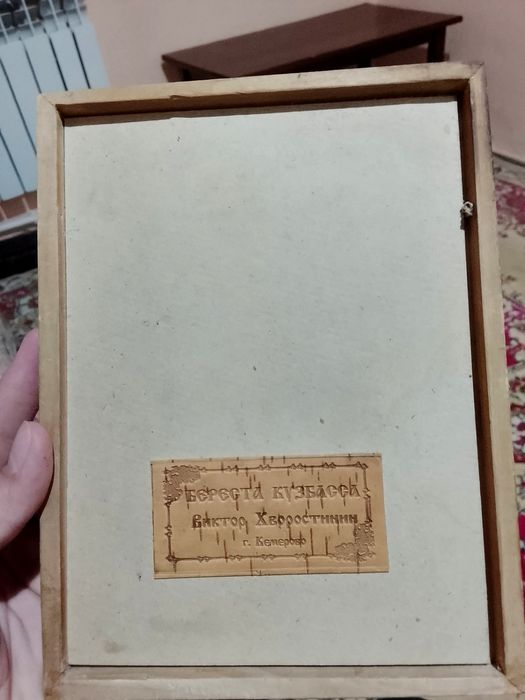 БЕРЕСТА КУЗБАССА
Виктор Хворостинин
г. Кемерово